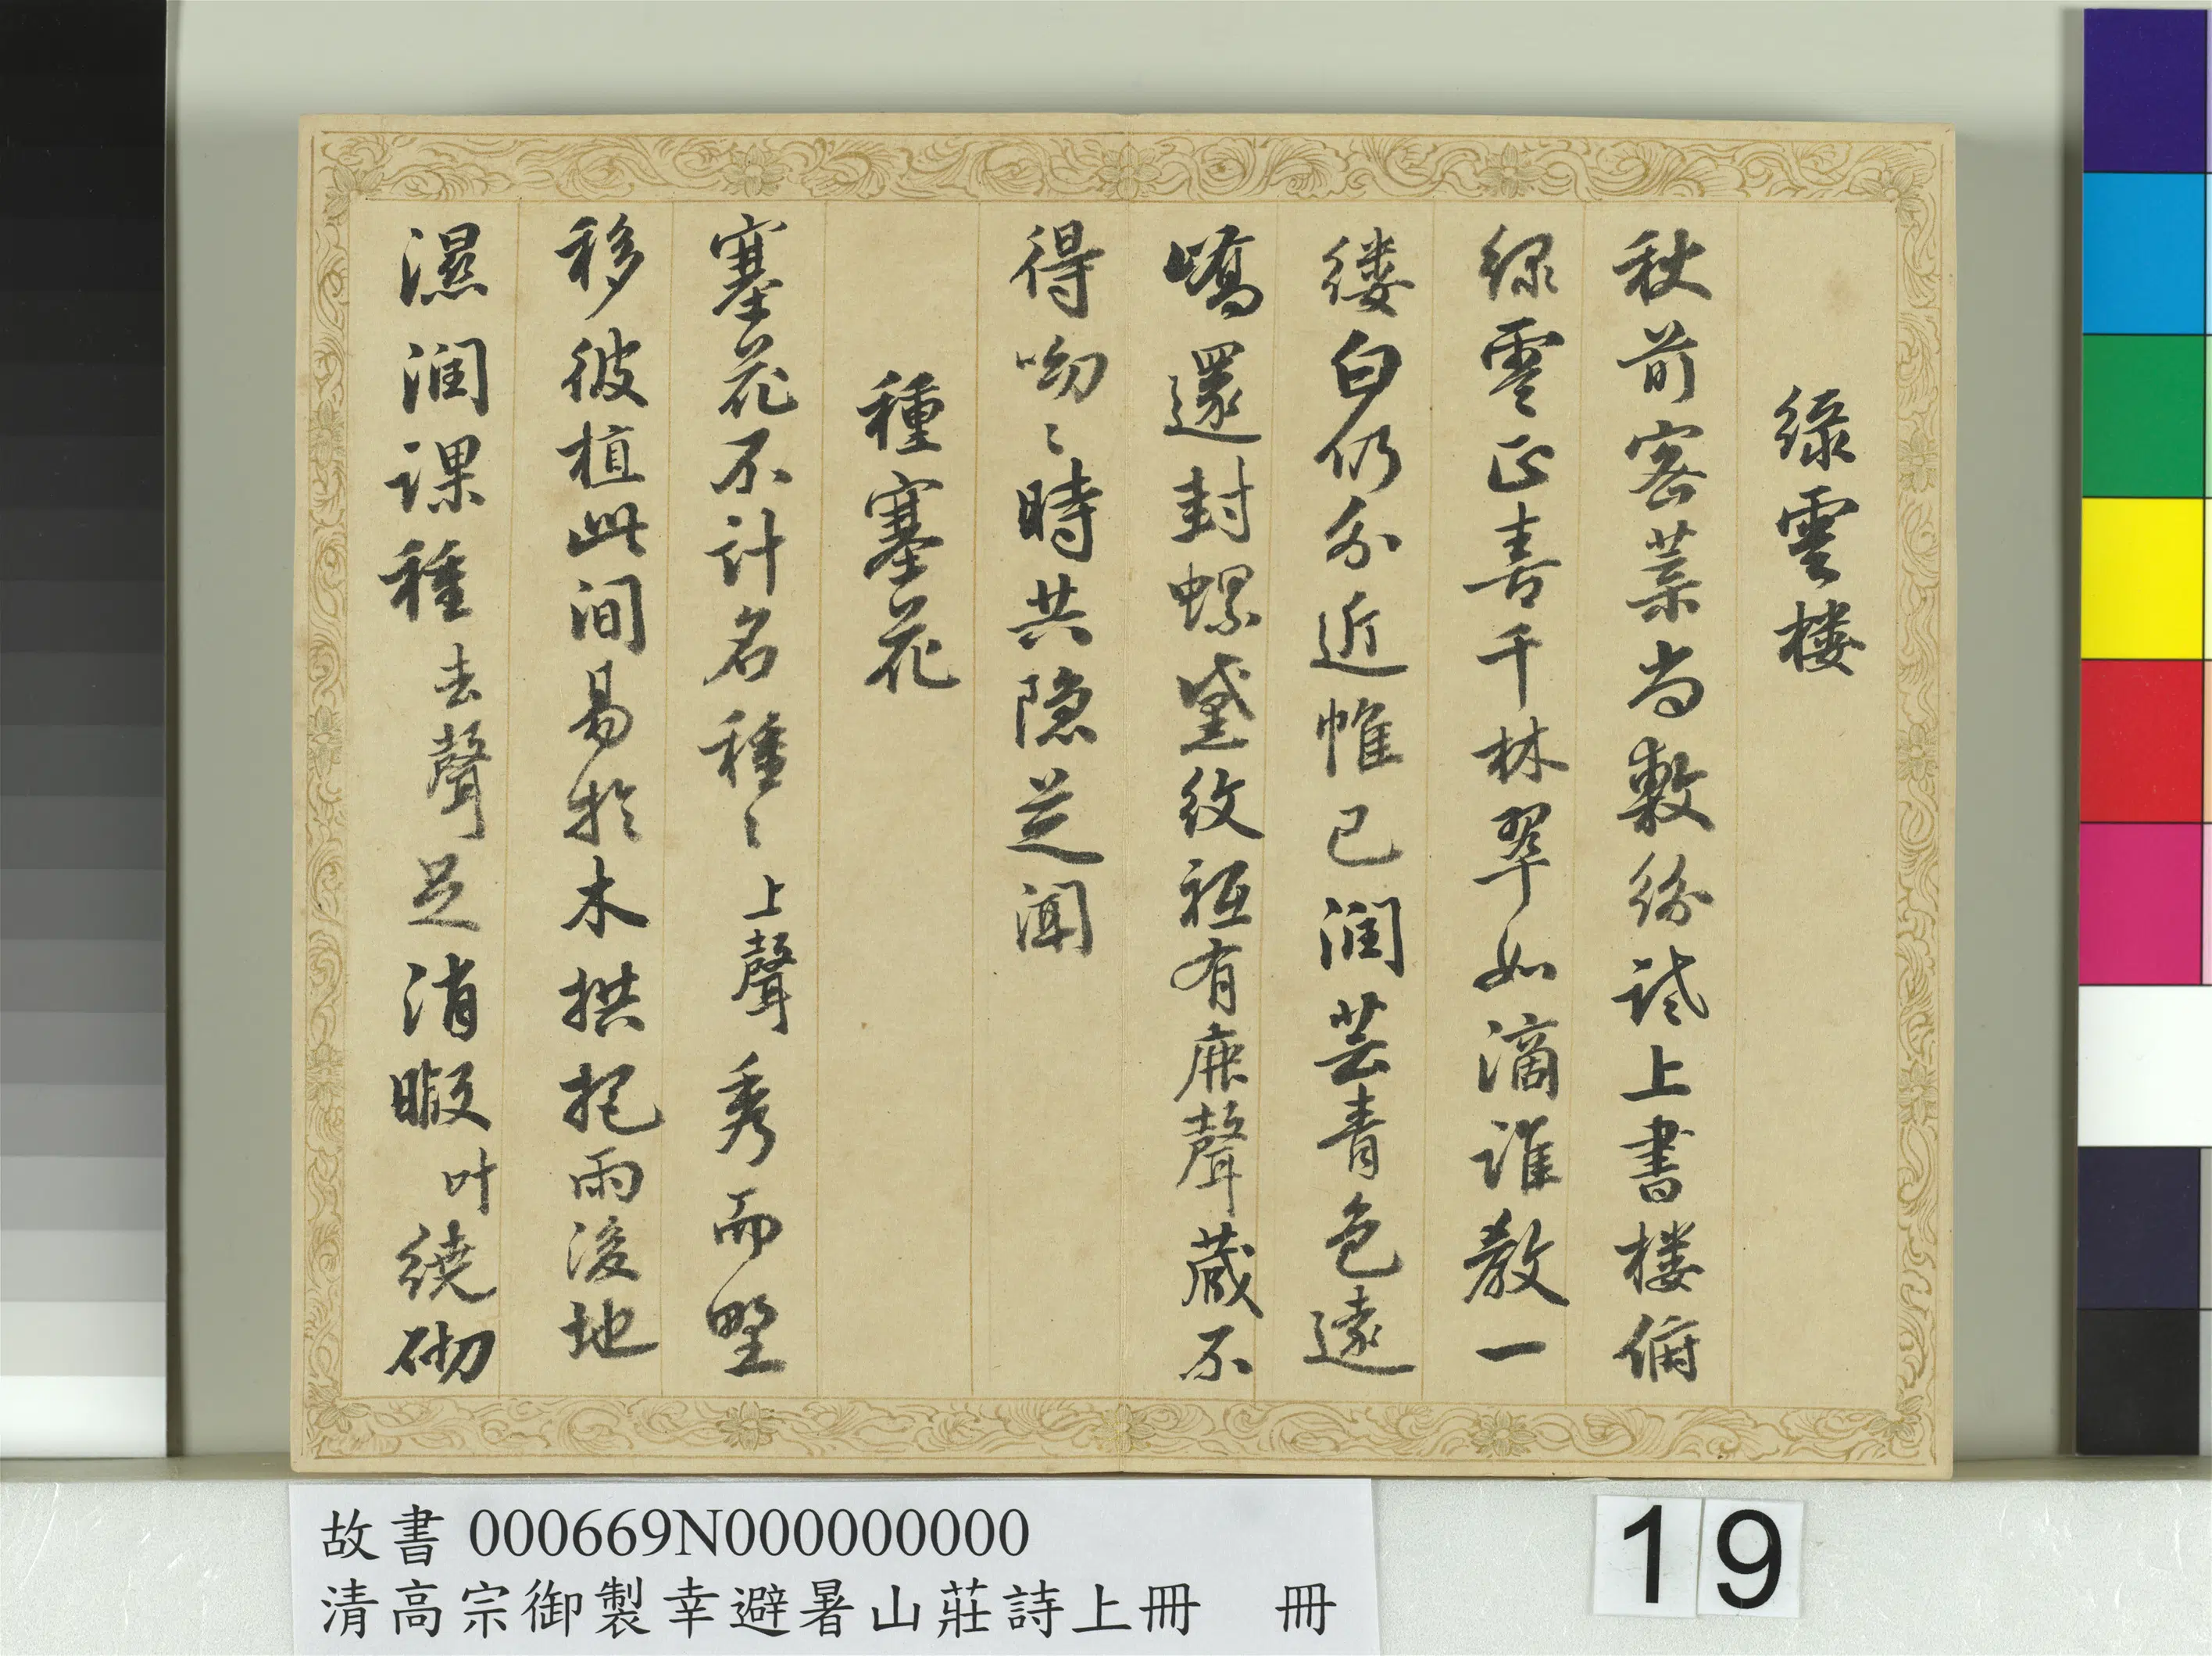 綠雲樓
秋前密葉尚敷紛試上書樓俯
綠雲正喜千林翠如滴誰教一
縷白仍分近帷已潤芸青色遠
嶠還封螺黛紋祗有鹿聲藏不
得呦〻時共隱芝聞
種塞花
塞花不計名種〻上聲秀而野
移彼植此間易於木拱把雨後地
濕潤課種去聲足消暇叶繞砌
故書 000669N000000000
清高宗御製幸避暑山莊詩上冊 冊
19